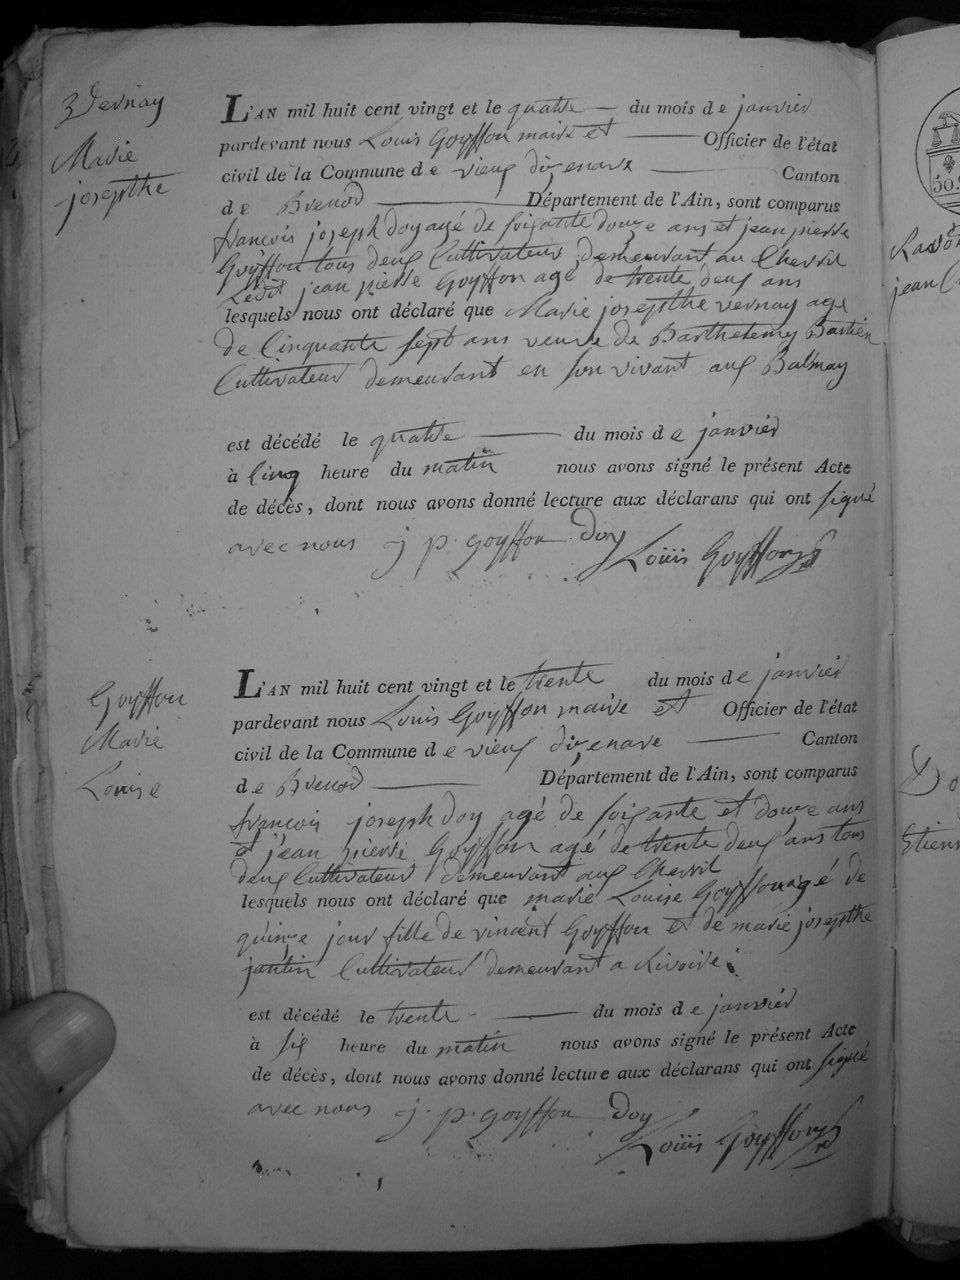 3 Vernay
Marie
josepthe
L'AN mil huit cent vingt et le quatre du mois de janvier
pardevant nous Louis Goyffon maire et Officier de l'état
civil de la Commune de vieux dizenave Canton
de Brenod Département de l'Ain, sont comparus
francois joseph doy agé de soixante douze ans et jean pierre
Goyffon tous deux Cultivateur demeurant au Chevril
Ledit jean pierre Goyffon age de trente deux ans
lesquels nous ont déclaré que Marie josepthe vernay age
de Cinquante sept ans veuve de Barthelemy Bastien
Cultivateur demeurant en son vivant aux Balmay
est décédé le quatre du mois de janvier
à Cinq heure du matin nous avons signé le présent Acte
de décès, dont nous avons donné lecture aux déclarans qui ont signé
avec nous j p. goyffon Doy Louis Goyffon
Goyffon
Marie
Louise
L'AN mil huit cent vingt et le trente du mois de janvier
pardevant nous Louis Goyffon maire et Officier de l'état
civil de la Commune de vieux dizenave Canton
de Brenod Département de l'Ain, sont comparus
francois joseph doy agé de soixante et douze ans
et jean pierre Goyffon agé de trente deux ans tous
deux Cultivateur demeurant aux Chevril
lesquels nous ont déclaré que marie Louise Goyffon agé de
quinze jour fille de vincent Goyffon et de marie josepthe
jantin Cultivateur demeurant a
est décédé le trente du mois de janvier
à six heure du matin nous avons signé le présent Acte
de décès, dont nous avons donné lecture aux déclarans qui ont signé
avec nous j. p. goyffon Doy
Louis Goyffon
jean
Etienn